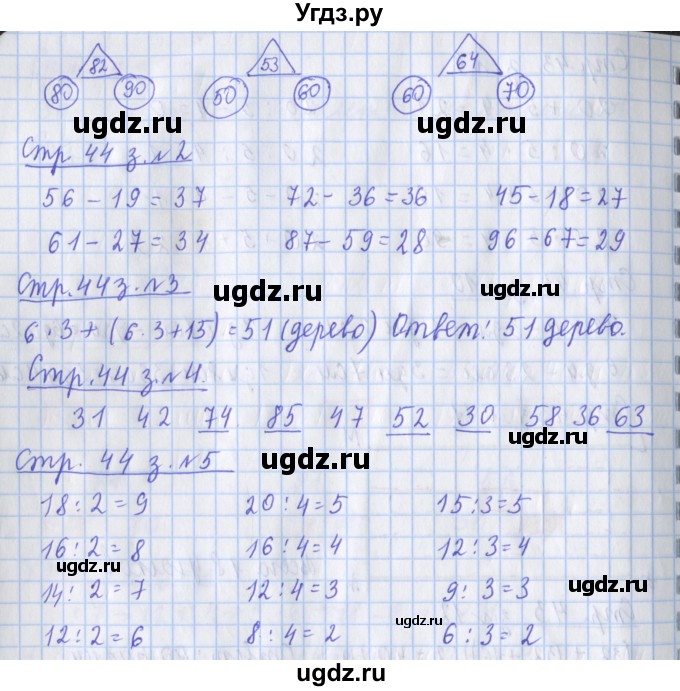 Угдз.ру
82 53 64
80 90 50 60 60 70
ugdz.ru ugdz.ru ugdz.ru
Стр 44 з. №2
56 - 19 = 37 72 - 36 = 36 45 - 18 = 27
61 - 27 = 34 87 - 59 = 28 96 - 67 = 29
Стр. 44 з. №3
ugdz.ru ugdz.ru
6 · 3 + (6 · 3 + 15) = 51 (дерево) Ответ: 51 дерево.
ugdz.ru
Стр. 44 з. №4.
31 42 74 85 47 52 30 58 36 63
ugdz.ru ugdz.ru
Стр. 44 з. №5
18 : 2 = 9 20 : 4 = 5 15 : 3 = 5
16 : 2 = 8 16 : 4 = 4 12 : 3 = 4
ugdz.ru ugdz.ru
14 : 2 = 7 12 : 4 = 3 9 : 3 = 3
ugdz.ru
12 : 2 = 6 8 : 4 = 2 6 : 3 = 2
ugdz.ru